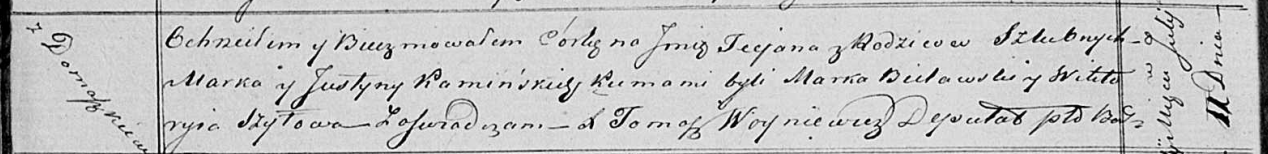 z Domaszkiew
Ochrzciłem y Bierzmowałem Córkę na Jmię Tecjana z Rodziców Szlubnych
Marka y Justyny Kamińskich Kumami byli Marka Bielawski y Wikto
ryia Szyłowa Zaświadczam X Tomasz Woyniewicz Deputat
Miejscu Julij
11 Dnia